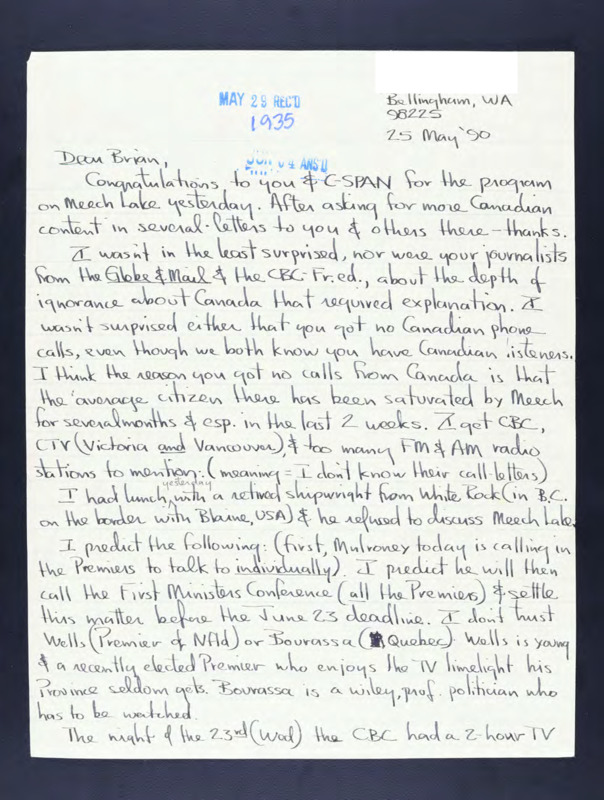 MAY 29 REC'D
1935
Bellingham, WA
98225
25 May '90
JUN 04 ANS'D
Dear Brian,
Congratulations to you & C-SPAN for the program
on Meech Lake yesterday. After asking for more Canadian
content in several letters to you & others there – thanks.
I wasn't in the least surprised, nor were your journalists
from the Globe & Mail & the CBC-Fr. ed., about the depth of
ignorance about Canada that required explanation. I
wasn't surprised either that you got no Canadian phone
calls, even though we both know you have Canadian listeners.
I think the reason you got no calls from Canada is that
the average citizen there has been saturated by Meech
for several months & esp. in the last 2 weeks. I get CBC,
CTV (Victoria and Vancouver), & too many FM & AM radio
stations to mention. (meaning = I don't know their call-letters)
I had lunch yesterday with a retired shipwright from White Rock (in B.C.
on the border with Blaine, USA) & he refused to discuss Meech Lake.
I predict the following: (first, Mulroney today is calling in
the Premiers to talk to individually). I predict he will then
call the First Ministers Conference (all the Premiers) & settle
this matter before the June 23 deadline. I don't trust
Wells (Premier of Nfld) or Bourassa (Quebec). Wells is young
& a recently elected Premier who enjoys the TV limelight his
Province seldom gets. Bourassa is a wiley, prof. politician who
has to be watched.
The night of the 23rd (Wed) the CBC had a 2-hour TV